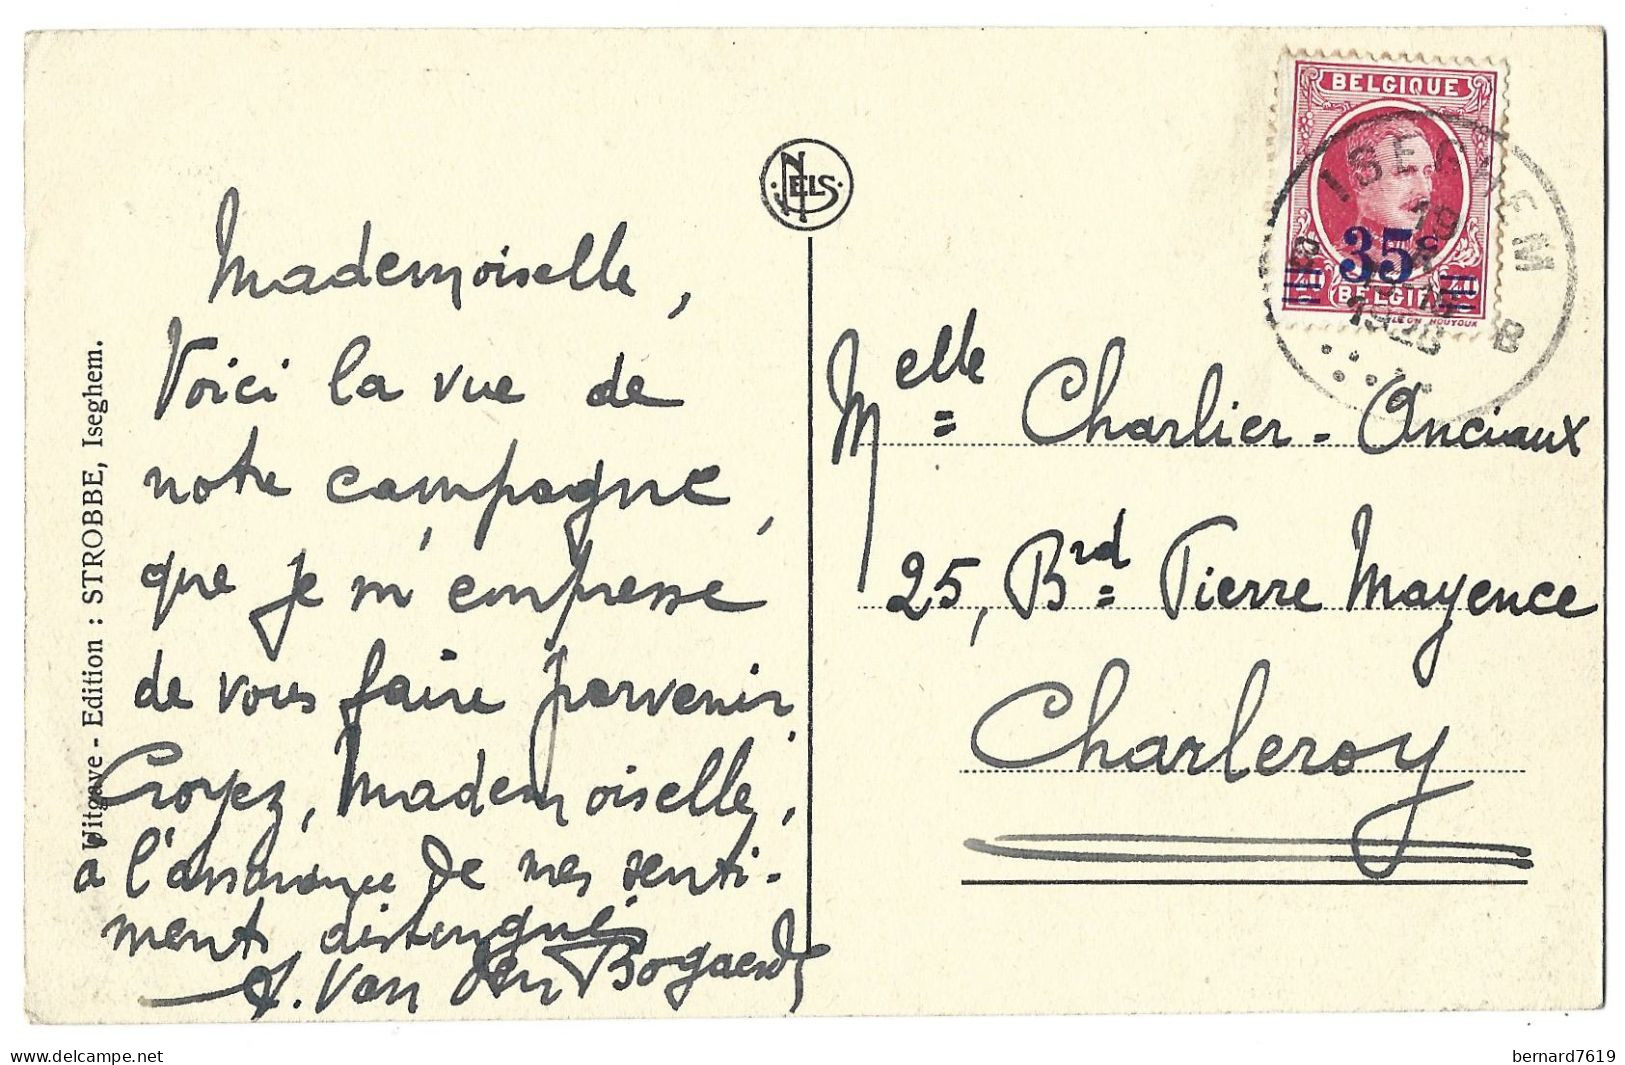 Mademoiselle,
Voici la vue de
notre campagne,
que je m'empresse
de vous faire parvenir.
Croyez, Mademoiselle,
à l'assurance de mes senti-
ments distingués
A. Van den Bogaerde
Uitgave - Edition : STROBBE, Iseghem.
NELS
BELGIQUE
35c
BELGIË
40
HOUYOUX
ISEGHEM
19
B
Melle Charlier - Onciaux
25, Brd Pierre Mayence
Charleroy
bernard7619